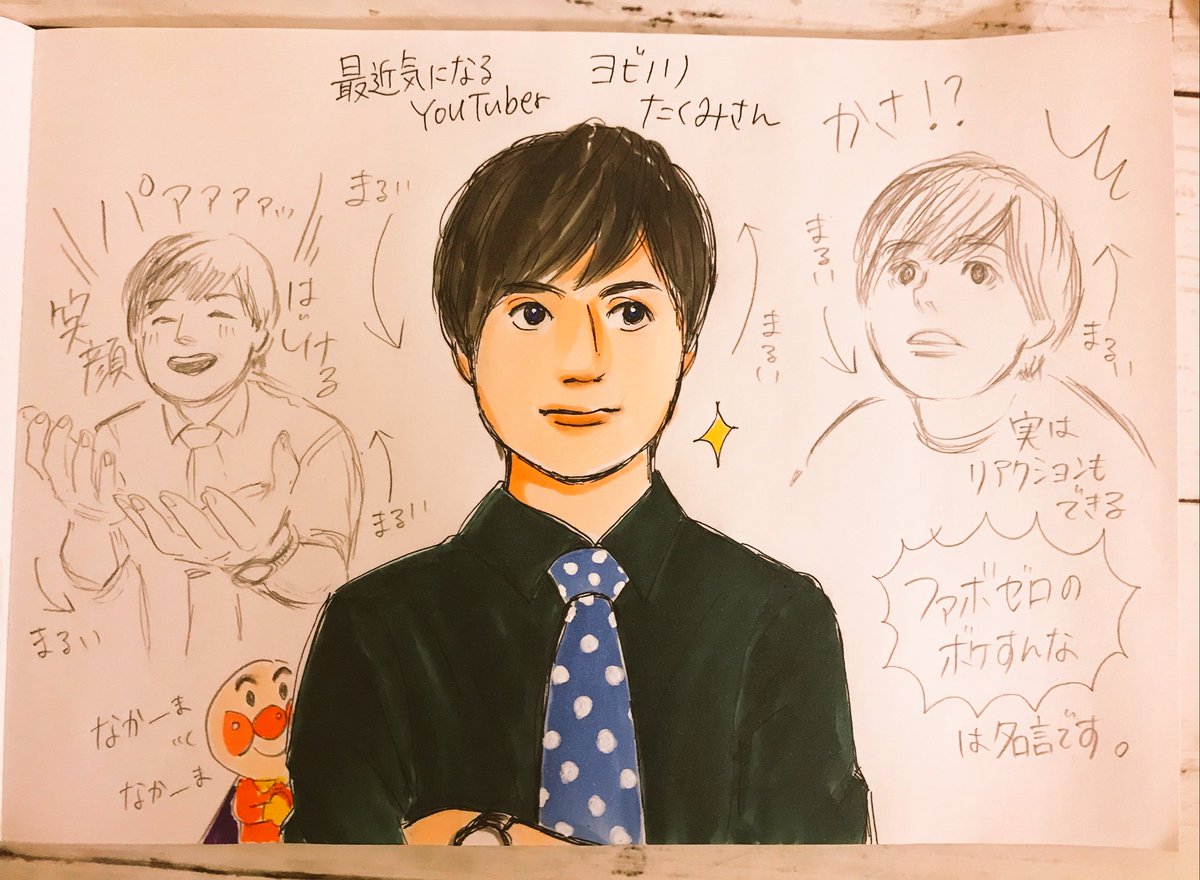 最近気になる
YouTuber
ヨビノリ
たくみさん
パアアアアッ
笑顔
はじける
まるい
まるい
まるい
まるい
なかーま
なかーま
かさ!?
まるい
まるい
実は
リアクションも
できる
ファボゼロの
ボケすんな
は名言です。